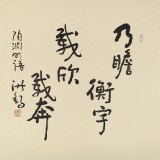 乃瞻
衡宇
載欣
載奔
陶淵明語